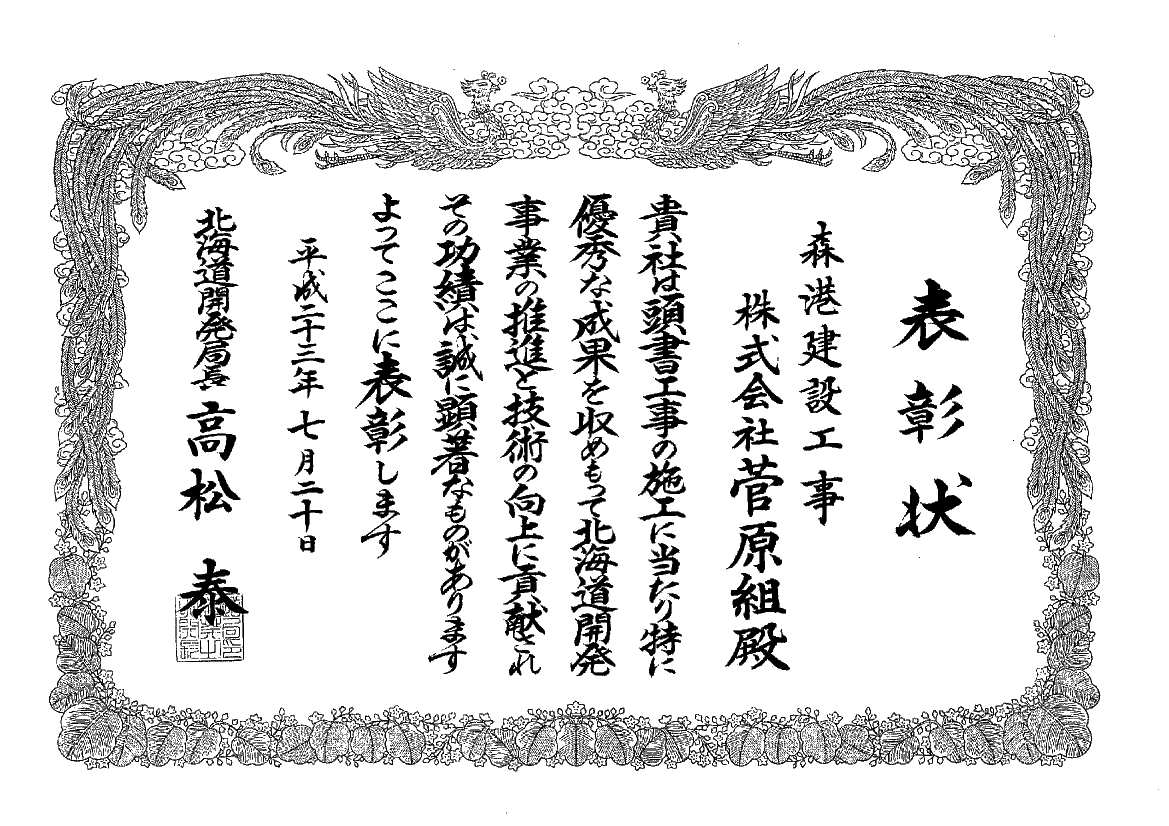 表彰状
森港建設工事
株式会社菅原組殿
貴社は頭書工事の施工に当たり特に
優秀な成果を収めもって北海道開発
事業の推進と技術の向上に貢献され
その功績は誠に顕著なものがあります
よってここに表彰します
平成二十三年七月二十日
北海道開発局長 高松 泰